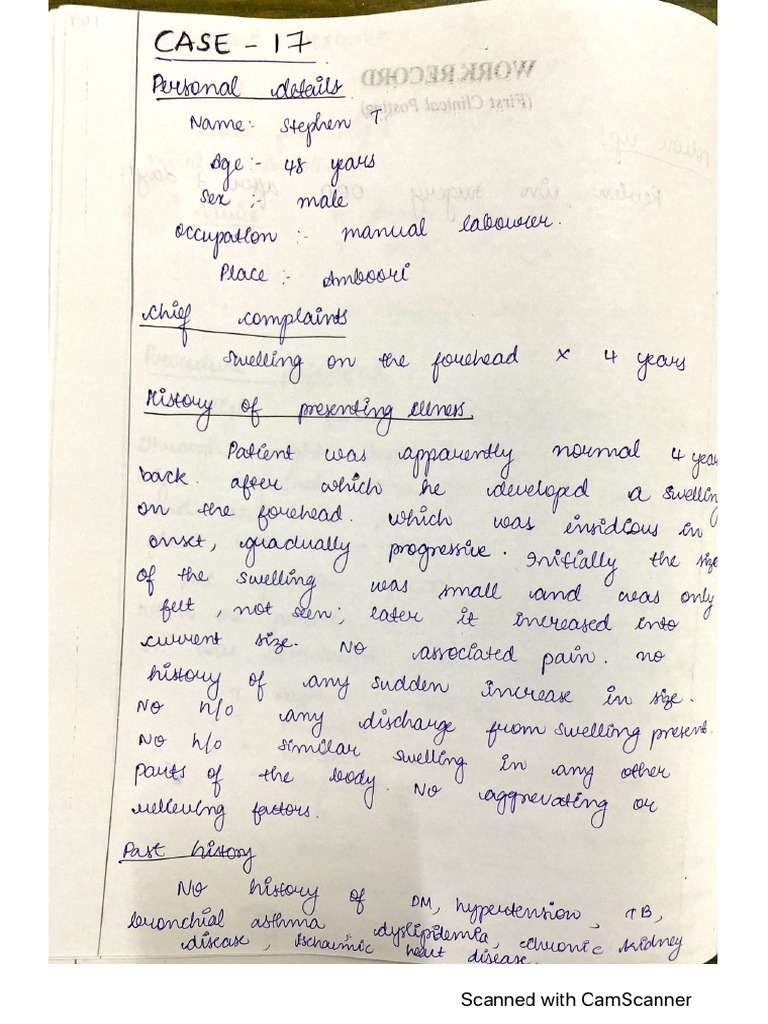 CASE - 17
Personal details
Name:- Stephen T
Age:- 48 years
Sex :- male
Occupation :- manual labourer.
Place :- Amboori
Chief complaints
Swelling on the forehead x 4 years
History of presenting illness.
Patient was apparently normal 4 years
back. after which he developed a swelling
on the forehead. which was insidious in
onset, gradually progressive. Initially the size
of the swelling was small and was only
felt, not seen; later it increased into
current size. No associated pain. no
history of any sudden increase in size.
No h/o any discharge from swelling present.
No h/o similar swelling in any other
parts of the body. No aggrevating or
relieving factors.
Past history
No history of DM, hypertension, TB,
bronchial asthma, dyslipidemia, chronic kidney
disease, ischaemic heart disease.
WORK RECORD
(First Clinical Posting)
Review in surgery OPD after 7 days
Scanned with CamScanner